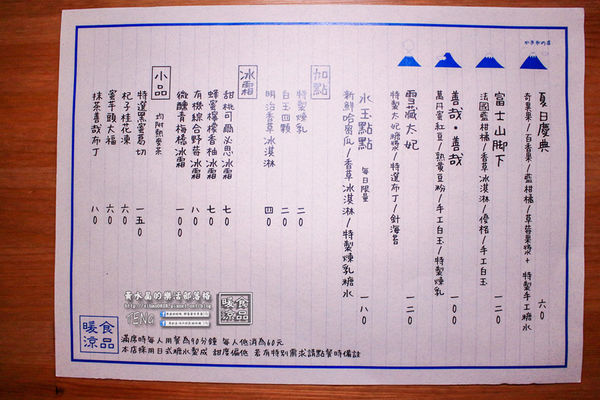 かき氷の店
夏日慶典
奇異果/百香果/藍柑橘/草莓果漿+特製手工糖水 六0
富士山腳下
法國藍柑橘/香草冰淇淋/優格/手工白玉 一二0
善哉·善哉
萬丹蜜紅豆/熟黃豆粉/手工白玉/特製煉乳 一00
雪藏太妃
特製太妃糖漿/特選布丁/針海苔 一二0
水玉點點 每日限量
新鮮哈密瓜/香草冰淇淋/特製煉乳糖水 一八0
加點
特製煉乳 二0
白玉四顆 二0
明治香草冰淇淋 四0
冰霜
甜桃可爾必思冰霜 七0
蜂蜜檸檬香柚冰霜 七0
有機綜合野莓冰霜 八0
微醺青梅橘冰霜 一00
小品
均附熱麥茶
特選黑蜜葛切 一五0
杞子桂花凍 六0
蜜芋頭大福 六0
抹茶善哉布丁 八0
黃水晶的樂活部落格
TENG
暖食
涼品
暖食
涼品
滿席時每人用餐為90分鐘 每人低消為60元
本店採用日式糖水製成 甜度偏低 若有特別需求請點餐時備註